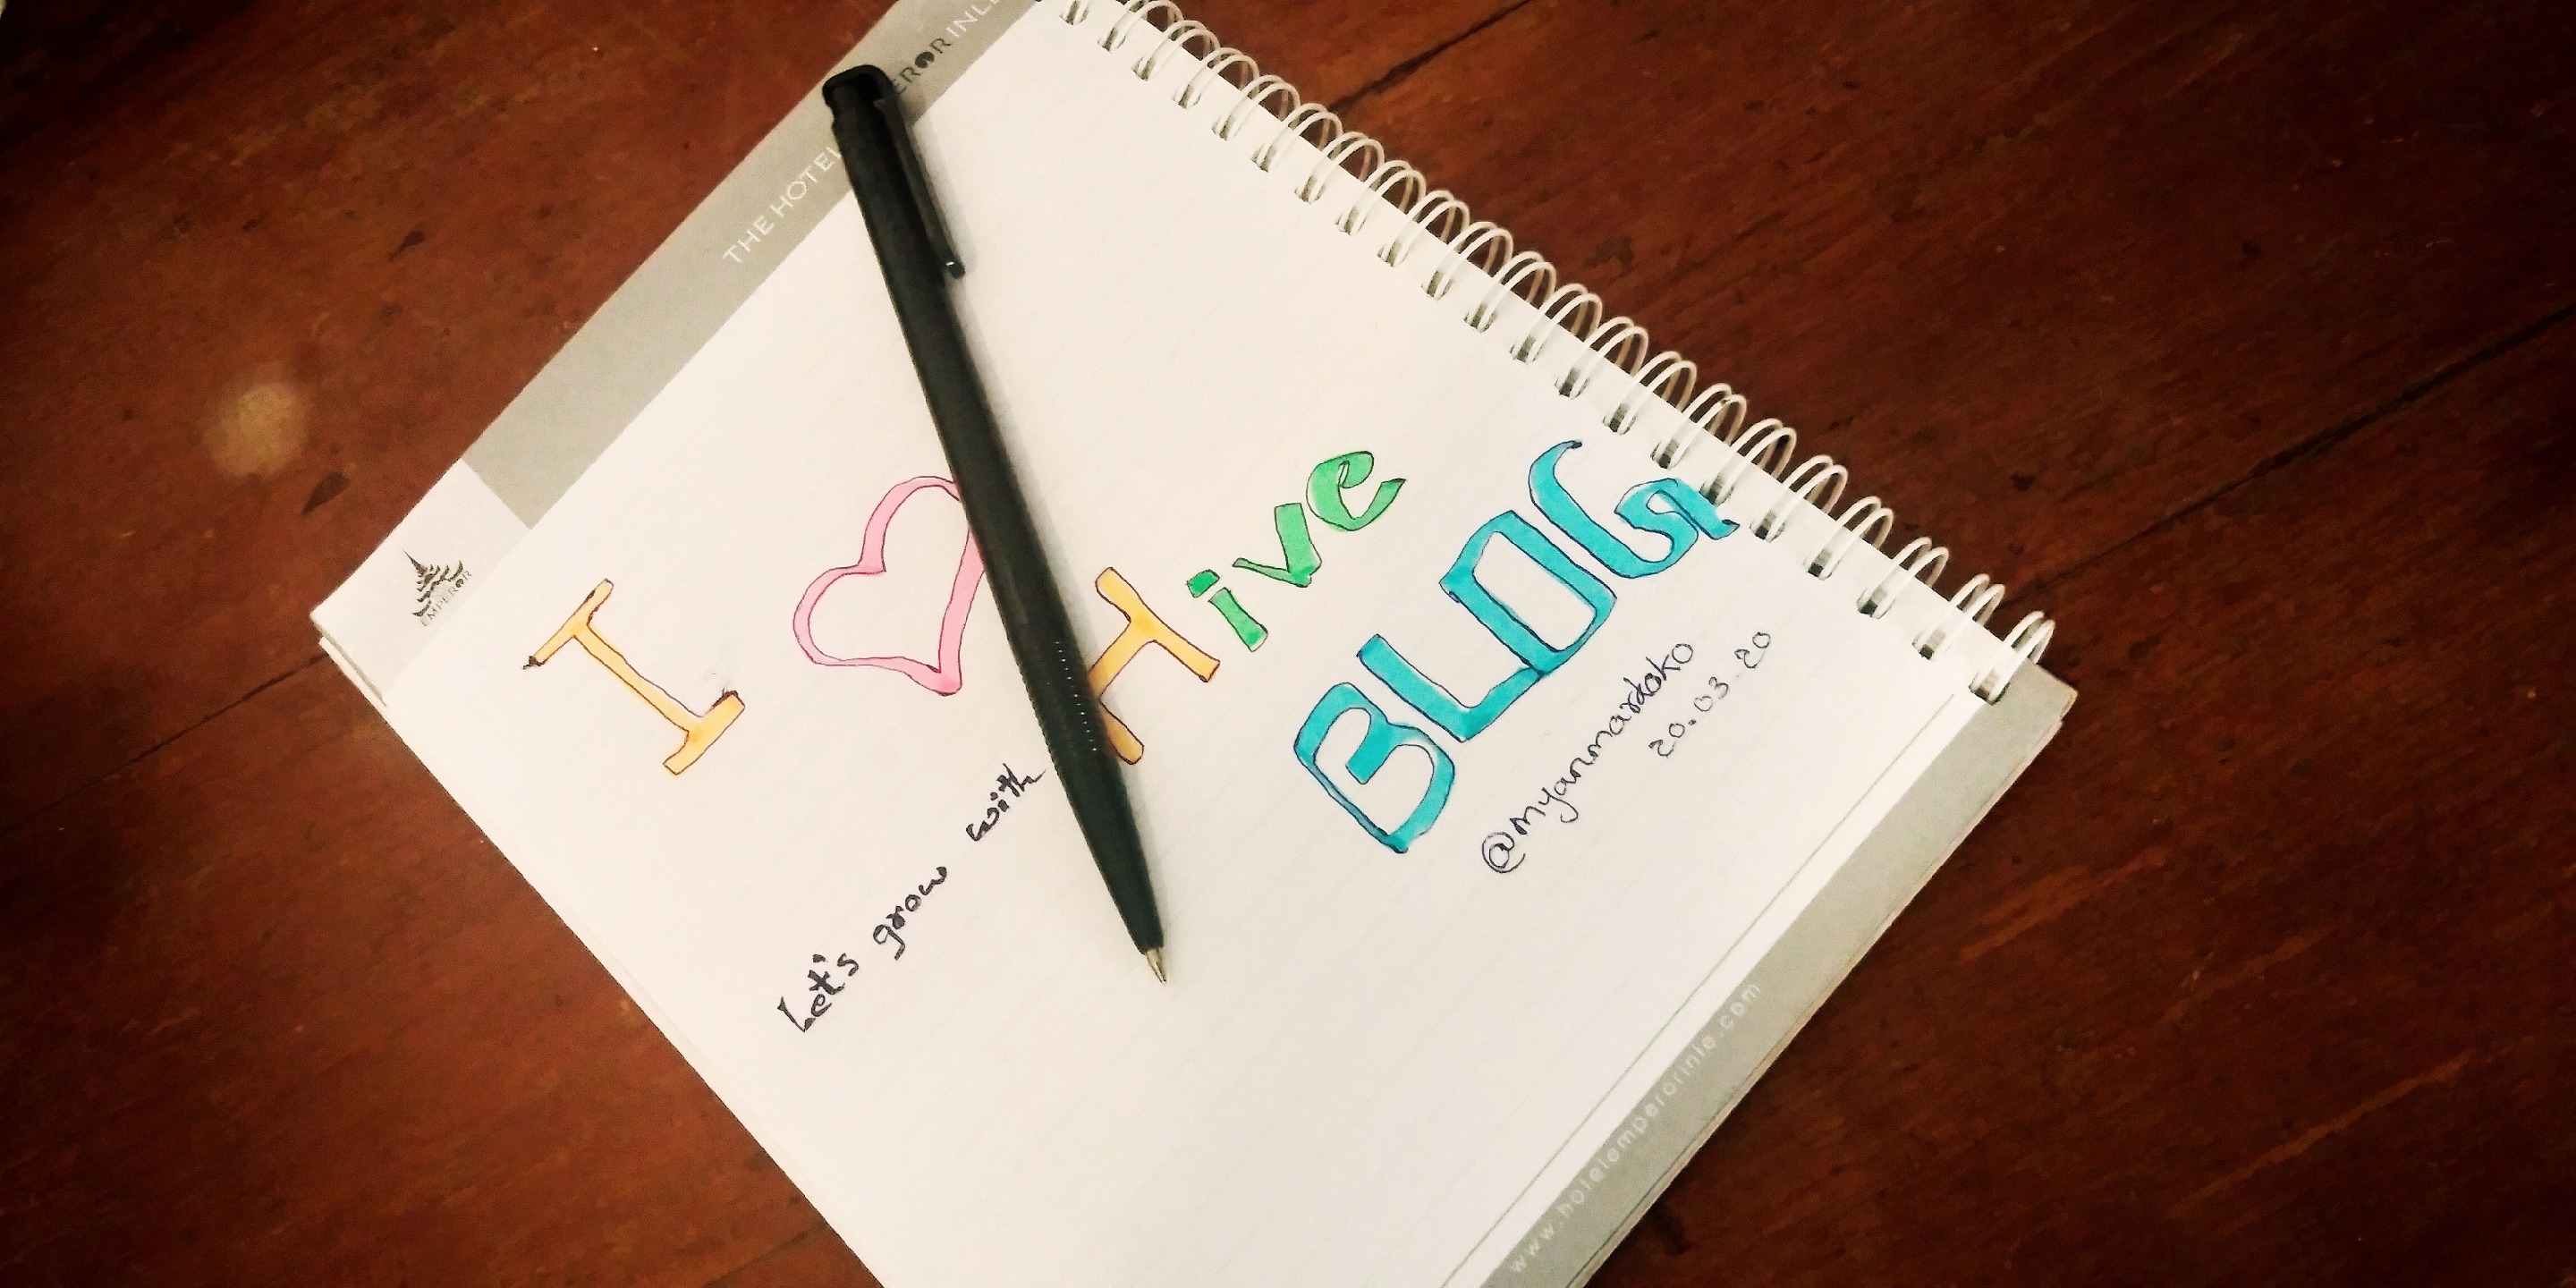 THE HOTEL EMPEROR INLE
EMPEROR
I ♡ Hive BLOG
Let's grow with
@myanmarkoko
20.03.20
www.hotelemperorinle.com